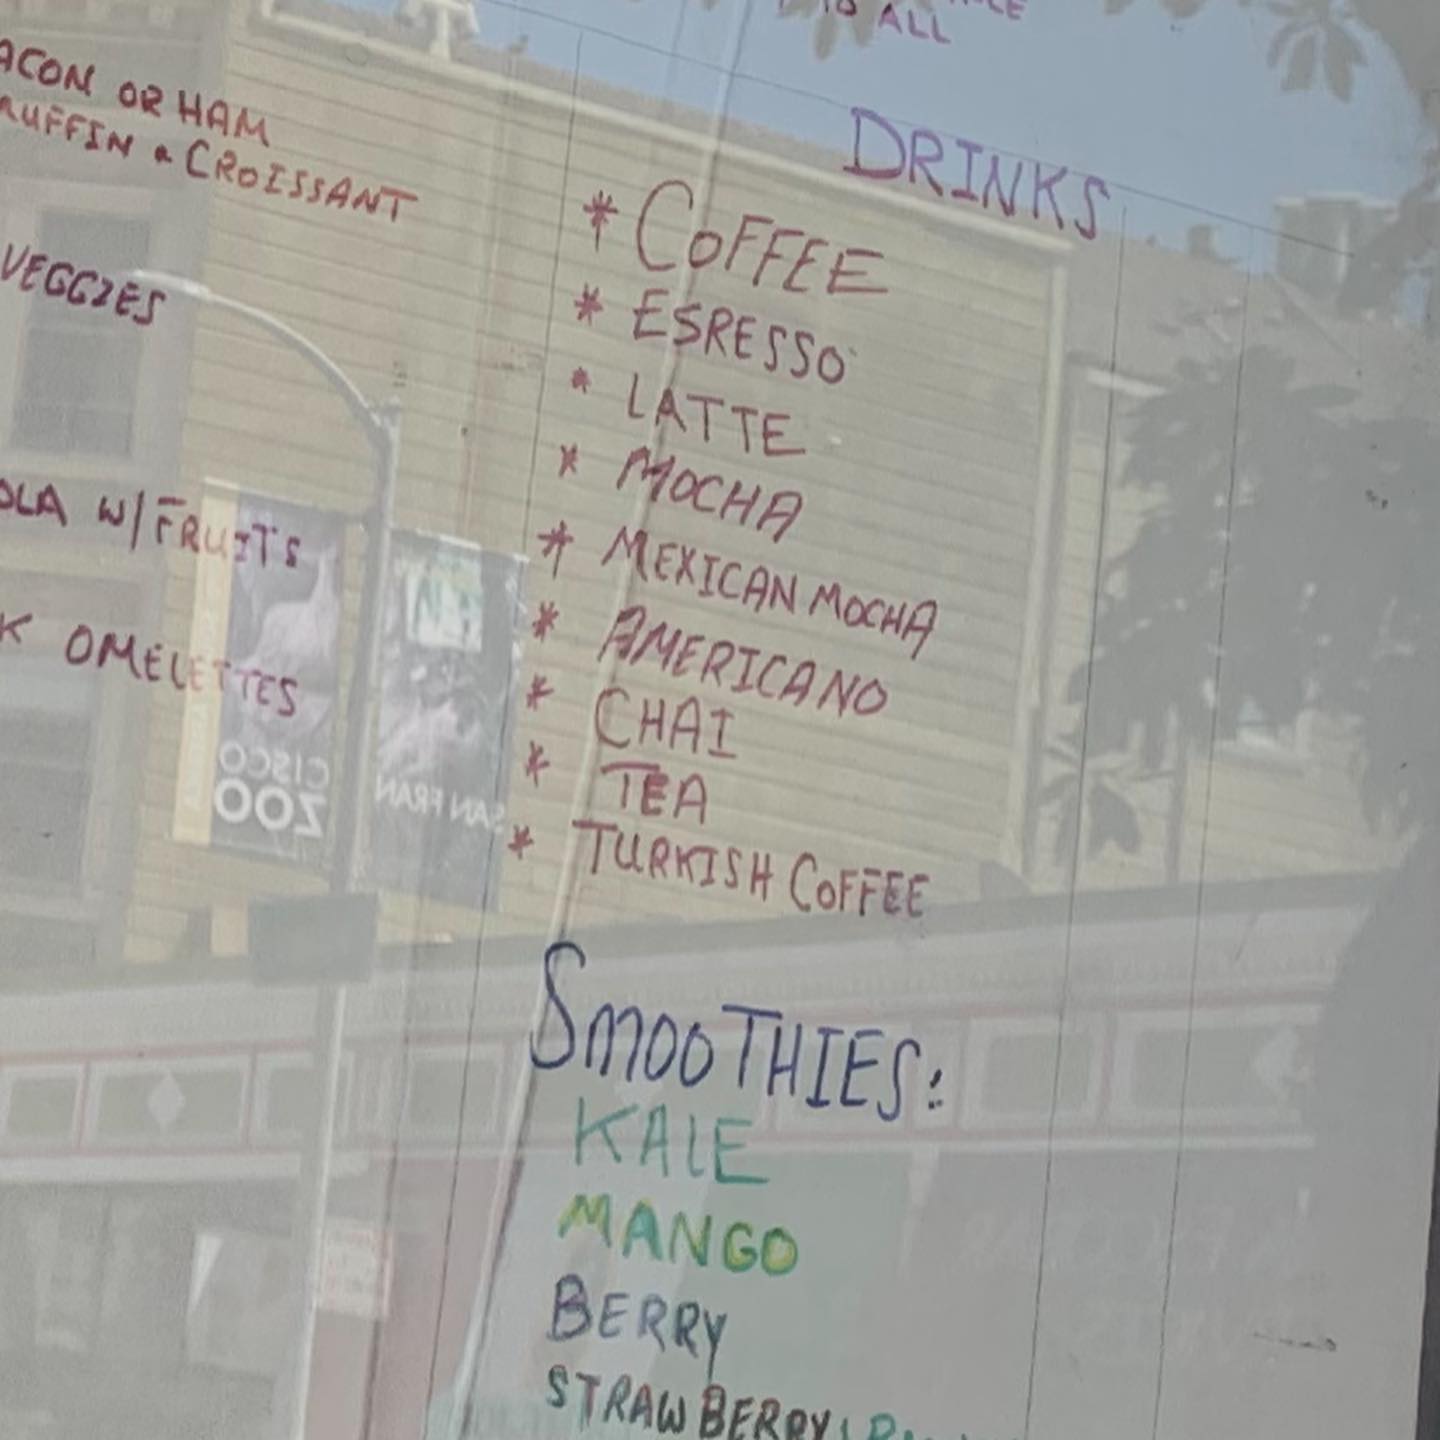 ALL
ACON OR HAM
UFFIN & CROISSANT
VEGGIES
OLA W/FRUITS
K OMELETTES
DRINKS
* COFFEE
* ESRESSO
* LATTE
* MOCHA
* MEXICAN MOCHA
* AMERICANO
* CHAI
* TEA
* TURKISH COFFEE
SMOOTHIES:
KALE
MANGO
BERRY
STRAWBERRY
SAN FRAN
CISCO
ZOO